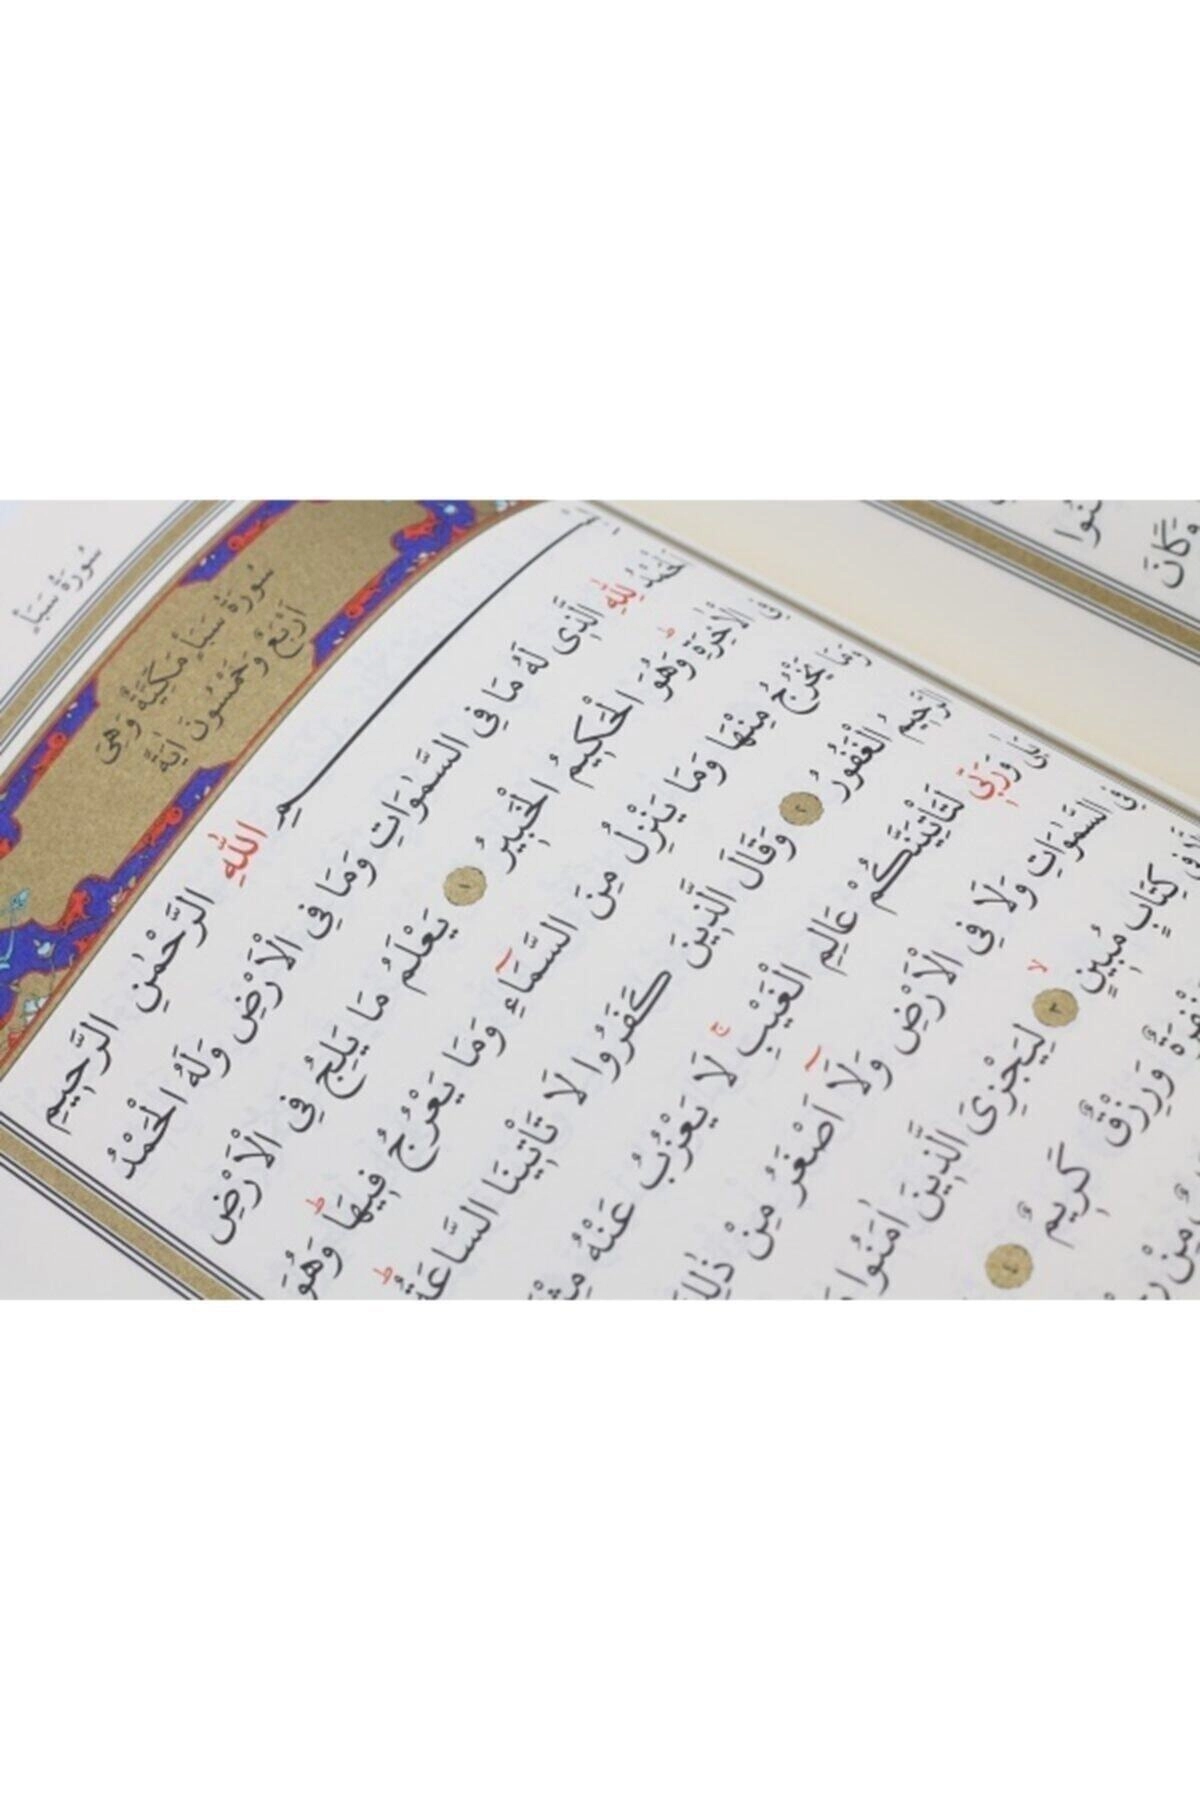 سُورَةُ سَبَأٍ
سُورَةُ سَبَأٍ مَكِّيَّةٌ وَهِيَ
اَرْبَعٌ وَخَمْسُونَ اٰيَةً
بِسْمِ اللّٰهِ الرَّحْمٰنِ الرَّحِيمِ
اَلْحَمْدُ لِلّٰهِ الَّذِى لَهُ مَا فِى السَّمٰوَاتِ وَمَا فِى الْاَرْضِ وَلَهُ الْحَمْدُ
فِى الْاٰخِرَةِ ط وَهُوَ الْحَكِيمُ الْخَبِيرُ ١ يَعْلَمُ مَا يَلِجُ فِى الْاَرْضِ
وَمَا يَخْرُجُ مِنْهَا وَمَا يَنْزِلُ مِنَ السَّمَاءِ وَمَا يَعْرُجُ فِيهَا ط وَهُوَ
الرَّحِيمُ الْغَفُورُ ٢ وَقَالَ الَّذِينَ كَفَرُوا لَا تَاْتِينَا السَّاعَةُ ط
وَرَبِّى لَتَاْتِيَنَّكُمْ عَالِمِ الْغَيْبِ ج لَا يَعْزُبُ عَنْهُ
فِى السَّمٰوَاتِ وَلَا فِى الْاَرْضِ وَلَا اَصْغَرُ مِنْ ذٰلِكَ
فِى كِتَابٍ مُبِينٍ لا ٣ لِيَجْزِىَ الَّذِينَ اٰمَنُوا
وَرِزْقٌ كَرِيمٌ ٤
مِنْ
وَكَانَ